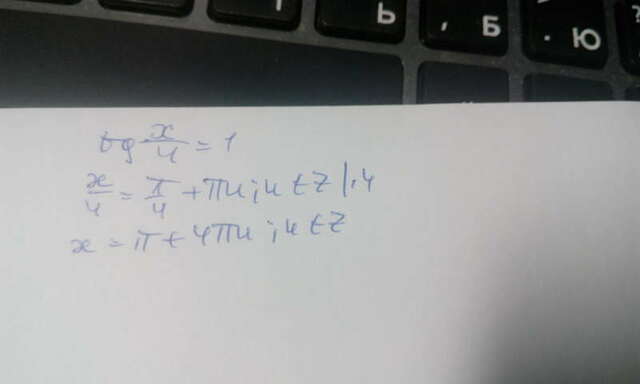 Ь
, Б
. Ю
tg x/4 = 1
x/4 = π/4 + πn; n ∈ Z |·4
x = π + 4πn; n ∈ Z